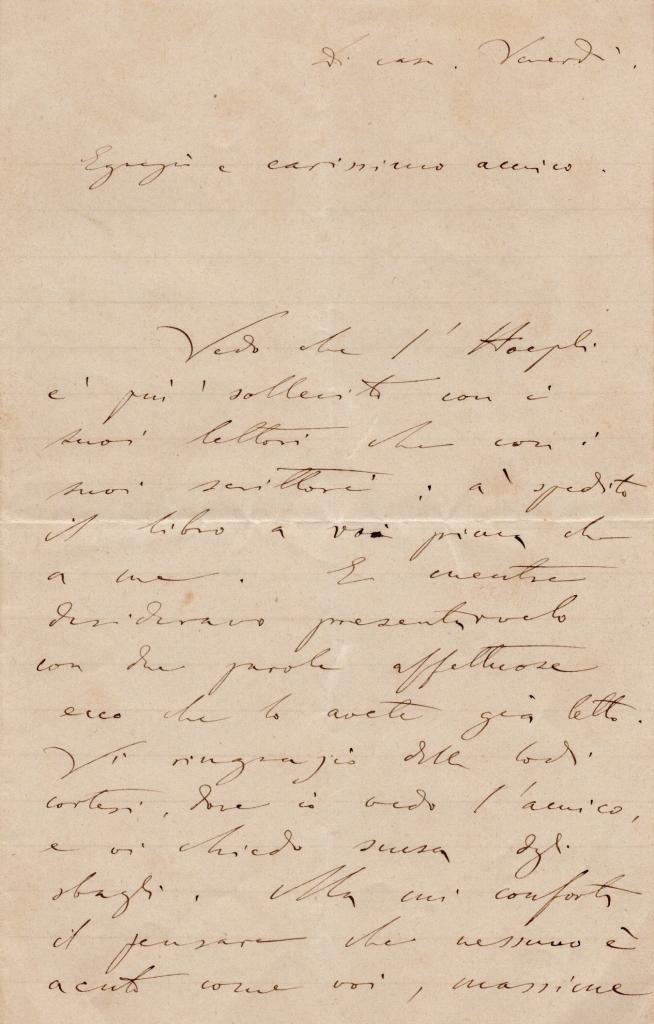 Di casa. Venerdì.
Egregio e carissimo amico.
Vedo che l'Hoepli
e' piu' sollecito con i
suoi lettori che con i
suoi scrittori: a' spedito
il libro a voi prima che
a me. E mentre
desideravo presentarvelo
con due parole affettuose
ecco che lo avete già letto.
Vi ringrazio delle lodi
cortesi, dove io vedo l'amico,
e vi chiedo scusa degli
sbagli. Ma mi conforta
il pensare che nessuno è
acuto come voi, massime